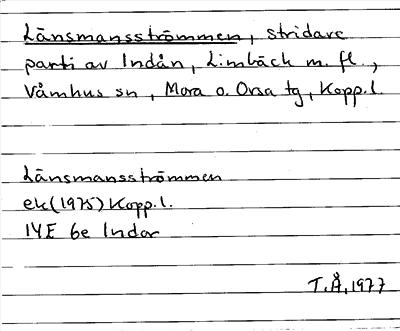 Länsmansströmmen, stridare
parti av Indån, Limbäck m. fl.,
Våmhus sn, Mora o. Orsa tg, Kopp.l.
Länsmansströmmen
ek(1975) Kopp.l.
14E 6e Indor
T.Å, 1977